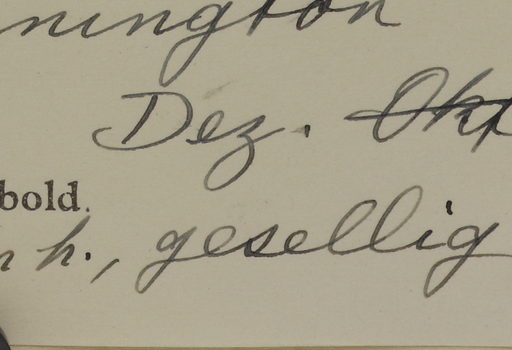 nington
Dez. Okt
bold.
h., gesellig